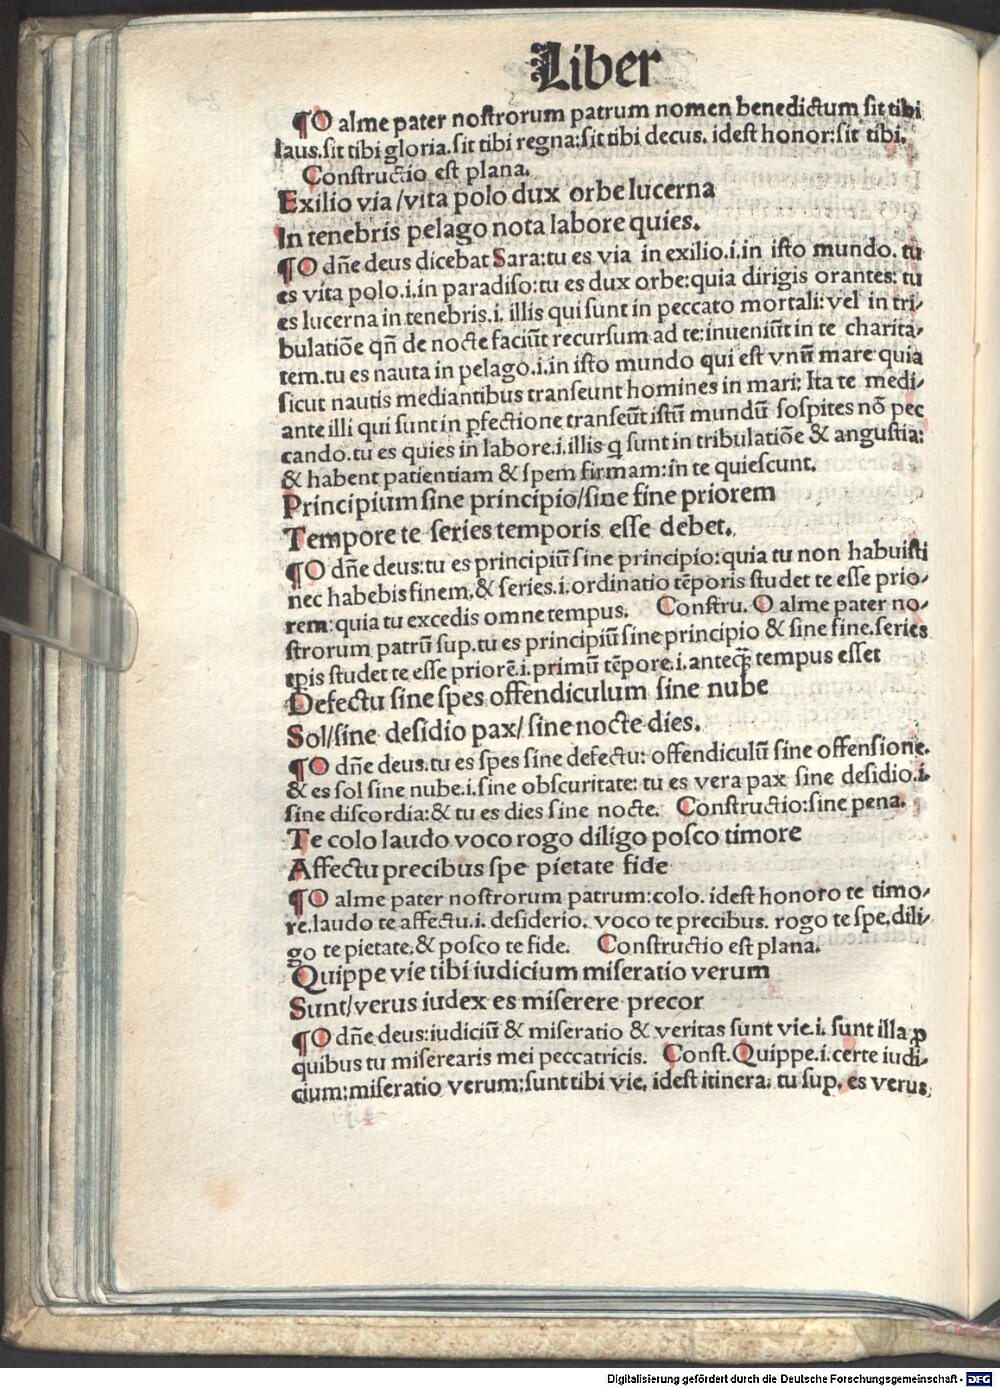 Liber
¶O alme pater nostrorum patrum nomen benedictum sit tibi
laus.sit tibi gloria.sit tibi regna:sit tibi decus. idest honor:sit tibi.
Constructio est plana.
Exilio via/vita polo dux orbe lucerna
In tenebris pelago nota labore quies.
¶O dñe deus dicebat Sara:tu es via in exilio.i.in isto mundo. tu
es vita polo.i.in paradiso:tu es dux orbe:quia dirigis orantes: tu
es lucerna in tenebris.i. illis qui sunt in peccato mortali: vel in tri/
bulatiõe qñ de nocte faciũt recursum ad te:inueniũt in te charita/
tem.tu es nauta in pelago.i.in isto mundo qui est vnũ mare quia
sicut nautis mediantibus transeunt homines in mari: Ita te medi/
ante illi qui sunt in ꝑfectione transeũt istũ mundũ sospites nõ pec
cando.tu es quies in labore.i.illis q̃ sunt in tribulatiõe & angustia:
& habent patientiam & spem firmam:in te quiescunt.
Principium sine principio/sine fine priorem
Tempore te series temporis esse debet.
¶O dñe deus:tu es principiũ sine principio:quia tu non habuisti
nec habebis finem.& series.i.ordinatio tẽporis studet te esse prio/
rem:quia tu excedis omne tempus. Constru. O alme pater no/
strorum patrũ sup.tu es principiũ sine principio & sine fine.series
tp̃is studet te esse priorẽ.i.primũ tẽpore.i.anteq̃ tempus esset
Defectu sine spes offendiculum sine nube
Sol/sine desidio pax/sine nocte dies.
¶O dñe deus.tu es spes sine defectu: offendiculũ sine offensione.
& es sol sine nube.i.sine obscuritate: tu es vera pax sine desidio.i.
sine discordia:& tu es dies sine nocte. Constructio:sine pena.
Te colo laudo voco rogo diligo posco timore
Affectu precibus spe pietate fide
¶O alme pater nostrorum patrum:colo. idest honoro te timo/
re.laudo te affectu.i. desiderio. voco te precibus. rogo te spe.dili/
go te pietate.& posco te fide. Constructio est plana.
Quippe vie tibi iudicium miseratio verum
Sunt/verus iudex es miserere precor
¶O dñe deus:iudiciũ & miseratio & veritas sunt vie.i. sunt illa ꝓ
quibus tu miserearis mei peccatricis. Const.Quippe.i.certe iudi/
cium:miseratio verum:sunt tibi vie. idest itinera: tu sup. es verus
Digitalisierung gefördert durch die Deutsche Forschungsgemeinschaft - DFG